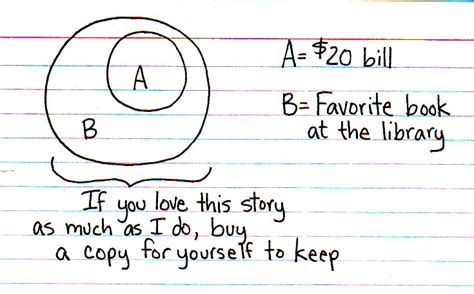 A
B
A= $20 bill
B= Favorite book
at the library
If you love this story
as much as I do, buy
a copy for yourself to keep